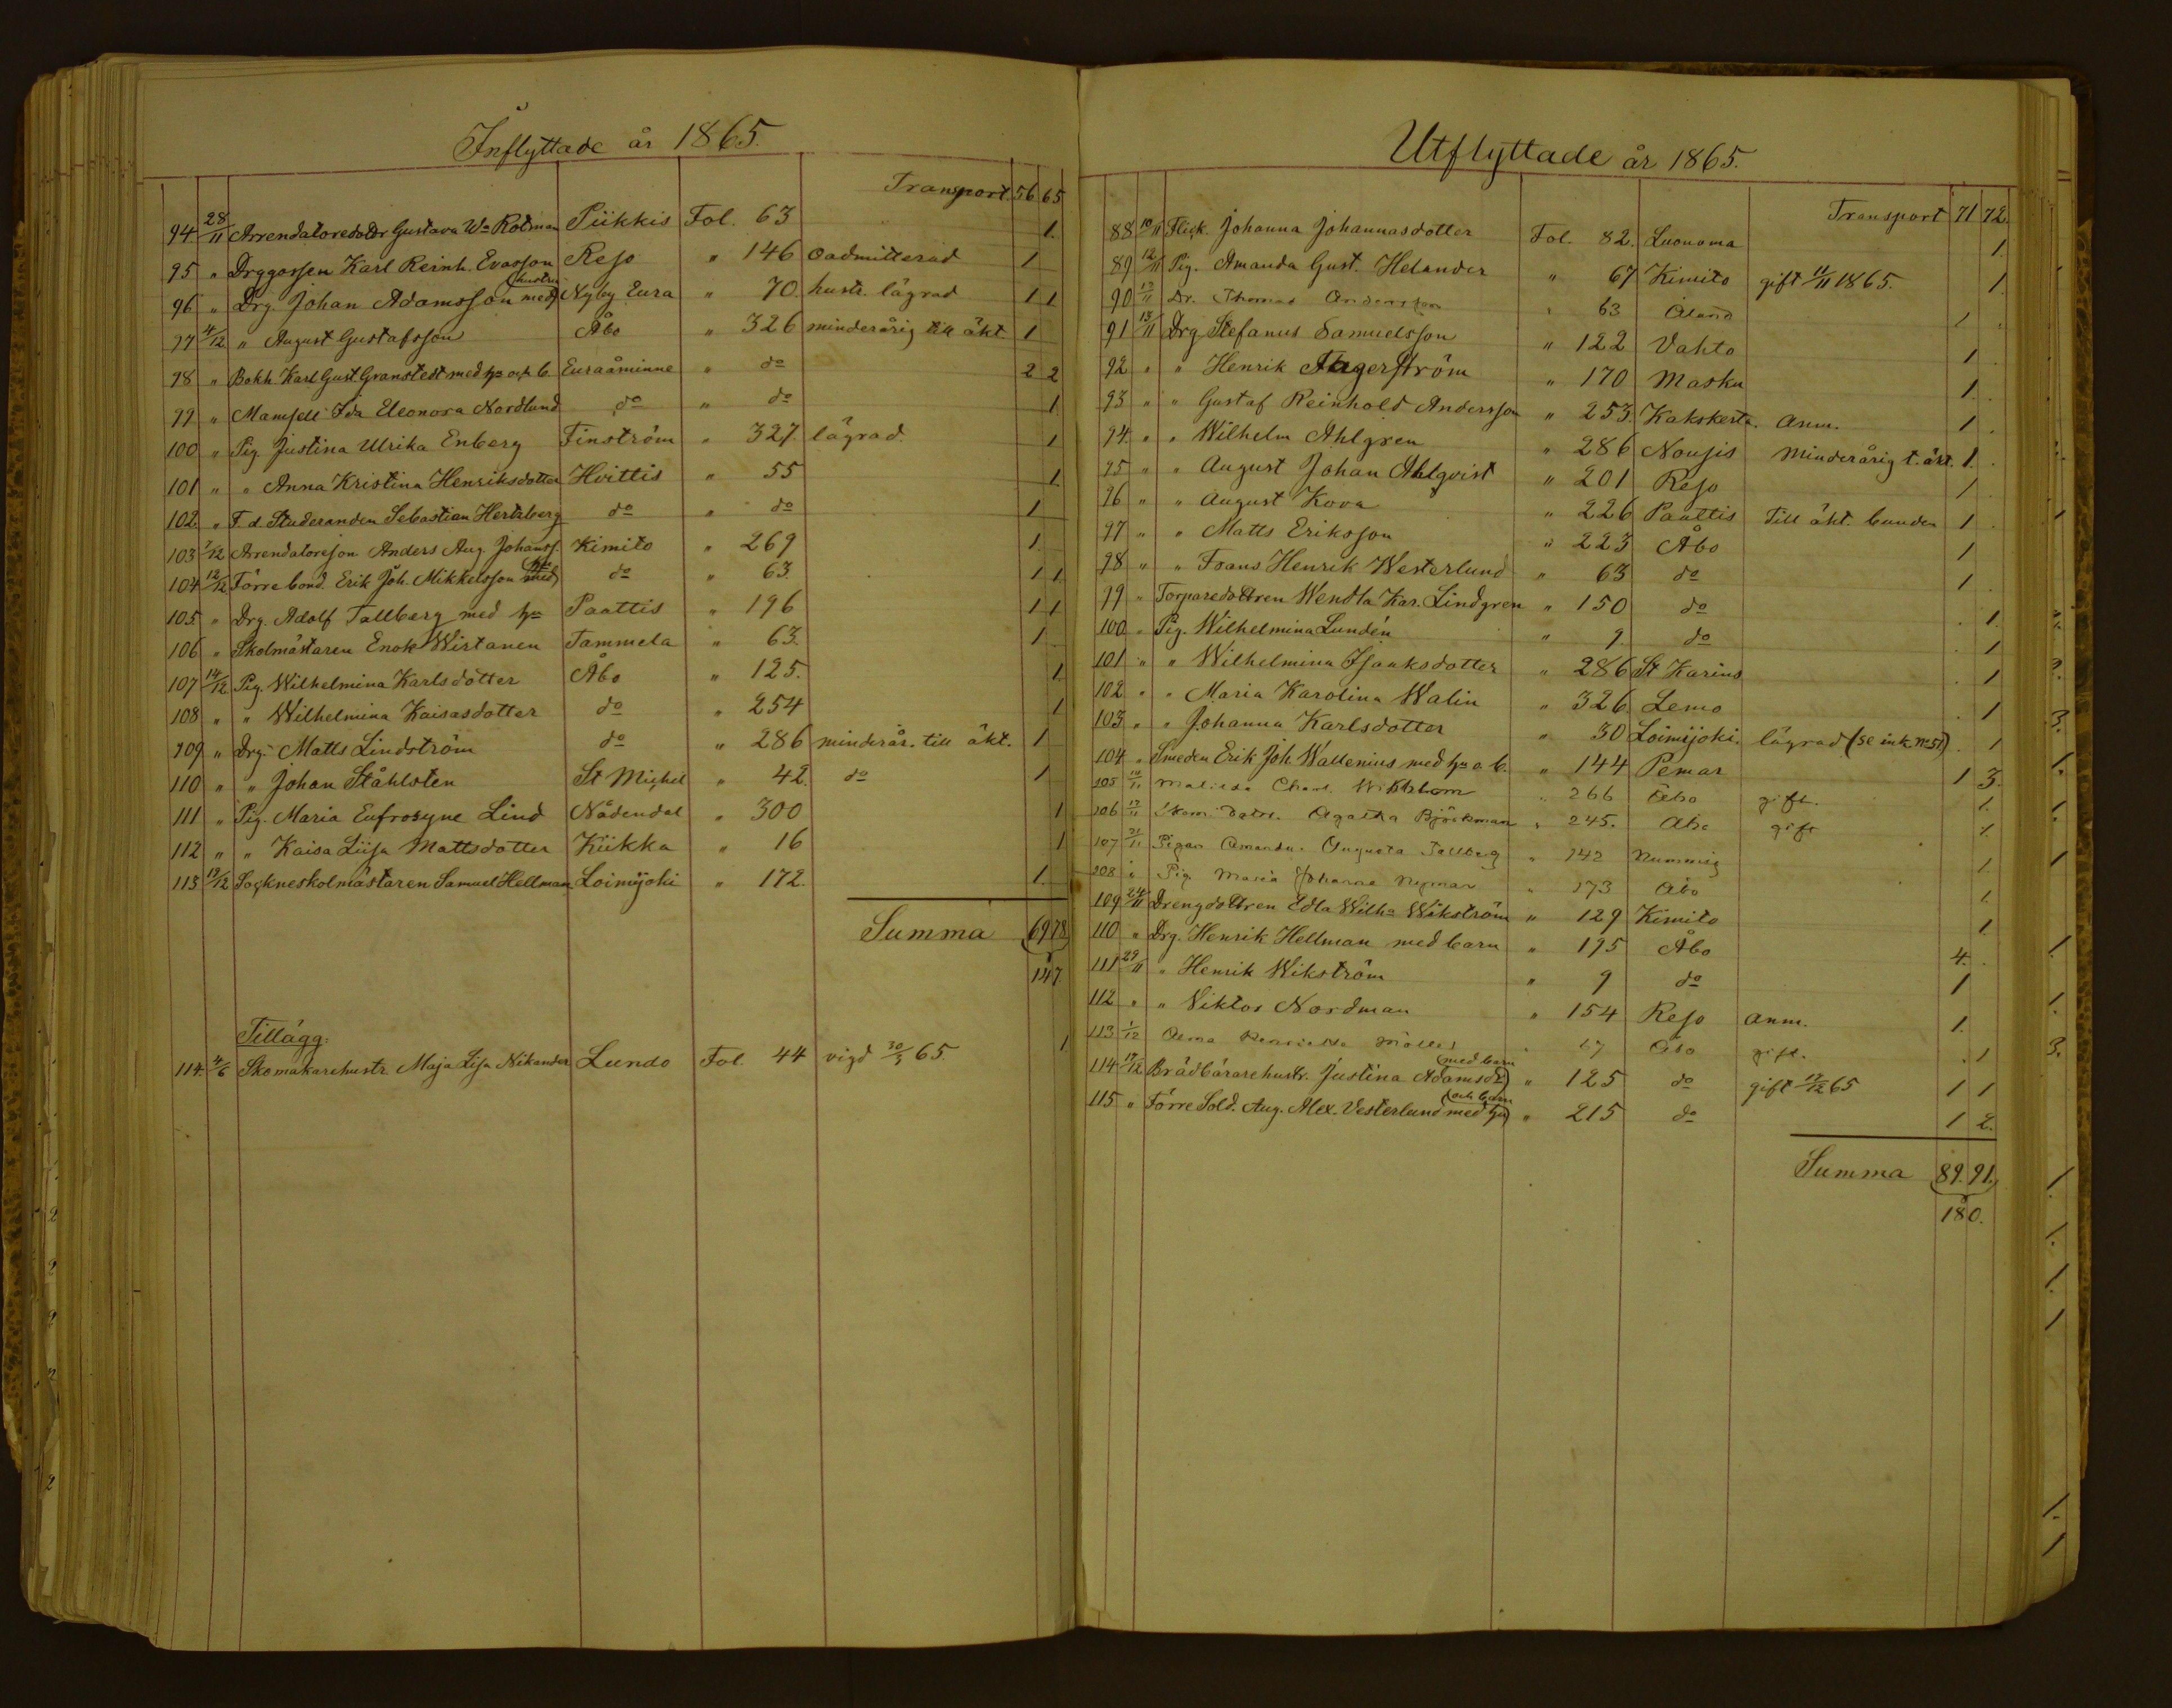 Inflyttade år 1865.
Transport. 56 65
94 28/11 Arrendatoredottr Gustava Wa Rotman Piikkis Fol. 63 1.
95 " Drggossen Karl Reinh. Evasson Reso " 146 oadmitterad 1
96 " Drg. Johan Adamsson med hustru Nyby Eura " 70. hustr. lägrad 1 1
97 4/12 " August Gustafsson Åbo " 326 minderårig till äkt. 1
98 " Bokh. Karl Gust. Granstedt med ha och b. Euraåminne " do 2 2
99 " Mamsell Ida Eleonora Nordlund do " do 1
100 " Pig. Justina Ulrika Enberg Finström " 327. lägrad. 1
101 " " Anna Kristina Henriksdotter Hvittis " 55 1.
102 " F. d. Studeranden Sebastian Hertzberg do " do 1
103 7/12 Arrendatoreson Anders Aug. Johanss. Kimito " 269 1.
104 12/12 Förre bond. Erik Joh. Mikkelsson med ha do " 63. 1 1
105 " Drg. Adolf Tallberg med ha Paattis " 196 1 1
106 " Skolmästaren Enok Wirtanen Tammela " 63. 1
107 14/12 Pig. Wilhelmina Karlsdotter Åbo " 125. 1
108 " " Wilhelmina Kaisasdotter do " 254 1
109 " Drg. Matts Lindström do " 286 minderår. till äkt. 1
110 " " Johan Ståhlsten St Michel " 42. do 1
111 " Pig. Maria Eufrosyne Lind Nådendal " 300 1
112 " " Kaisa Liisa Mattsdotter Kiikka " 16 1
113 19/12 Sockneskolmästaren Samuel Hellman Loimijoki " 172. 1.
Summa 69 78
147.
Tillägg:
114. 4/6 Skomakarehustr. Maja Lisa Nikander Lundo Fol. 44 vigd 30/5 65. 1
Utflyttade år 1865.
Transport 71 72.
88 10/11 Flick. Johanna Johannasdotter Fol. 82. Luonoma 1.
89 12/11 Pig. Amanda Gust. Helander " 67 Kimito gift 11/11 1865. 1
90 13/11 Dr. Thomas Andersson " 63 Åland 1
91 13/11 Drg. Stefanus Samuelsson " 122 Vahto 1
92 " " Henrik Fagerström " 170 Masku 1.
93 " " Gustaf Reinhold Andersson " 253. Kakskerta. anm. 1
94. " " Wilhelm Ahlgren " 286 Nousis Minderårig t. äkt. 1.
95 " " August Johan Ahlqvist " 201 Reso 1
96 " " August Kova " 226 Paattis Till äkt. bunden 1
97 " " Matts Eriksson " 223 Åbo 1
98 " " Frans Henrik Westerlund " 63 do 1
99 " Torparedottren Wendla Kar. Lindgren " 150 do 1.
100 " Pig. Wilhelmina Lundén " 9. do 1
101 " " Wilhelmina Isaaksdotter " 286 St Karins 1
102 " " Maria Karolina Walin " 326 Lemo 1
103 " " Johanna Karlsdotter " 30 Loimijoki. lägrad (se ink. No 51) 1
104 " Smeden Erik Joh. Wallenius med ha o. b. " 144 Pemar 1 3.
105 Matilda Charl. Wikblom " 266 Åbo gift. 1.
106 dotr. Agatha Björkman " 245. Åbo gift 1.
107 21/11 Pigan Amanda Augusta Tallberg " 142 Nummis 1.
108 " Pig. Maria Johanna Nyman " 173 Åbo 1.
109 24/11 Drengdottren Edla Wilha Wikström " 129 Kimito 1.
110 " Drg. Henrik Hellman med barn " 195 Åbo 4.
111 29/11 " Henrik Wikström " 9 do 1
112 " " Viktor Nordman " 154 Reso anm. 1.
113 1/12 Alma Henrietta Möller " 67 Åbo gift. 1
114 17/12 Brädbärarehustr. Justina Adamsdr med barn " 125 do gift 17/12 65 1 1
115 " Förre Sold. Aug. Alex. Vesterlund med ha och barn " 215 do 1 2.
Summa 89. 91.
180.